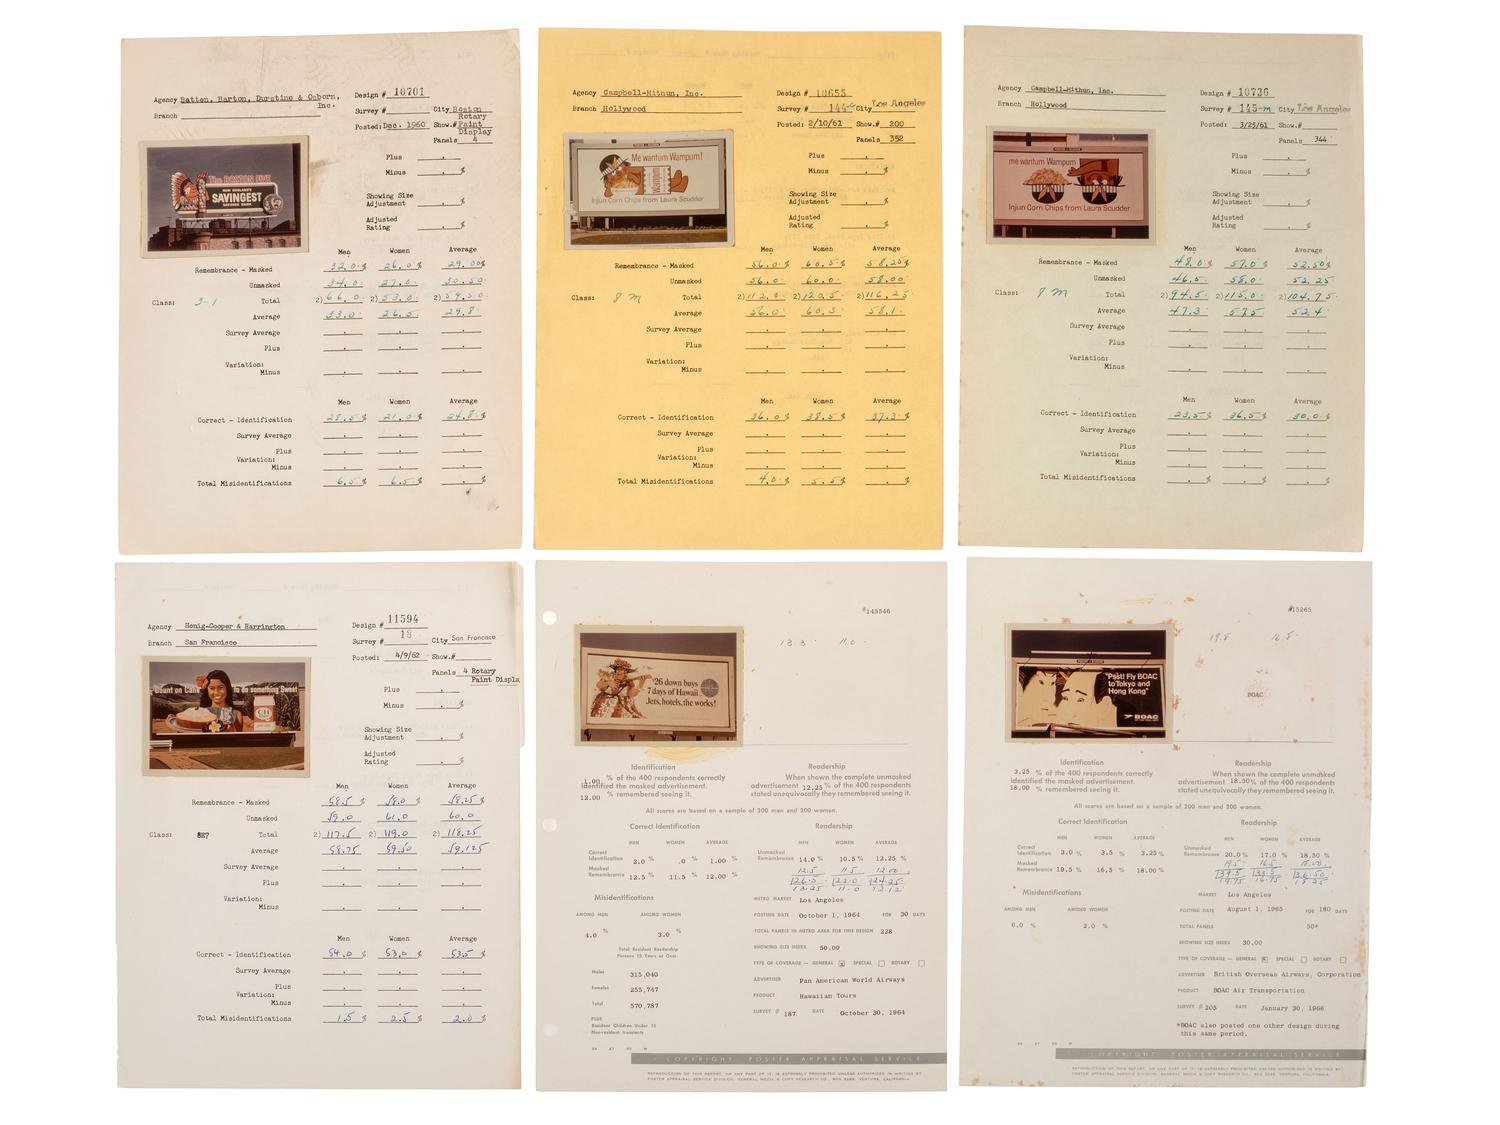 Agency Batten, Barton, Durstine & Osborn, Inc.
Branch
Design # 10701
Survey #
City Boston
Posted: Dec. 1960
Show.# Rotary Paint Display
Panels 4
The BOSTON FIVE
NEW ENGLAND'S
SAVINGEST
SAVINGS BANK
Plus
Minus %
Showing Size
Adjustment %
Adjusted
Rating %
Men Women Average
Remembrance - Masked 32.0 % 26.0 % 29.00 %
Unmasked 34.0 27.0 30.50
Class: 3-1 Total 2) 66.0 2) 53.0 2) 59.50
Average 33.0 26.5 29.8
Survey Average
Plus
Variation:
Minus
Men Women Average
Correct - Identification 28.5 % 21.0 % 24.8 %
Survey Average
Plus
Variation:
Minus
Total Misidentifications 6.5 % 6.5 % %
Agency Campbell-Mithun, Inc.
Branch Hollywood
Design # 10655
Survey # 144-
City Los Angeles
Posted: 2/10/61 Show.# 200
Panels 352
Me wantum Wampum!
Wampum
Injun Corn Chips from Laura Scudder
Plus
Minus %
Showing Size
Adjustment %
Adjusted
Rating %
Men Women Average
Remembrance - Masked 56.0 % 60.5 % 58.25 %
Unmasked 56.0 60.0 58.00
Class: 8 M Total 2) 112.0 2) 120.5 2) 116.25
Average 56.0 60.3 58.1
Survey Average
Plus
Variation:
Minus
Men Women Average
Correct - Identification 36.0 % 38.5 % 37.3 %
Survey Average
Plus
Variation:
Minus
Total Misidentifications 4.0 % 5.5 % %
Agency Campbell-Mithun, Inc.
Branch Hollywood
Design # 10736
Survey # 145-M City Los Angeles
Posted: 3/25/61 Show.#
Panels 344
me wantum Wampum
Injun Corn Chips from Laura Scudder
Plus
Minus %
Showing Size
Adjustment %
Adjusted
Rating %
Men Women Average
Remembrance - Masked 48.0 % 57.0 % 52.50 %
Unmasked 46.5 58.0 52.25
Class: 8 M Total 2) 94.5 2) 115.0 2) 104.75
Average 47.3 57.5 52.4
Survey Average
Plus
Variation:
Minus
Men Women Average
Correct - Identification 23.5 % 36.5 % 30.0 %
Survey Average
Plus
Variation:
Minus
Total Misidentifications % %
Agency Honig-Cooper & Harrington
Branch San Francisco
Design # 11594
Survey # 18 City San Francisco
Posted: 4/9/62 Show.#
Panels 4 Rotary
Paint Displa
Count on Cane to do something Sweet
C and H
Plus
Minus %
Showing Size
Adjustment %
Adjusted
Rating %
Men Women Average
Remembrance - Masked 58.5 % 58.0 % 58.25 %
Unmasked 59.0 61.0 60.0
Class: 8E7 Total 2) 117.5 2) 119.0 2) 118.25
Average 58.75 59.50 59.125
Survey Average
Plus
Variation:
Minus
Men Women Average
Correct - Identification 54.0 % 53.0 % 53.5 %
Survey Average
Plus
Variation:
Minus
Total Misidentifications 1.5 % 2.5 % 2.0 %
#145546
13.3 11.0
$26 down buys
7 days of Hawaii.
Jets, hotels, the works!
Identification
1.00 % of the 400 respondents correctly
identified the masked advertisement.
12.00 % remembered seeing it.
Readership
When shown the complete unmasked
advertisement 12.25 % of the 400 respondents
stated unequivocally they remembered seeing it.
All scores are based on a sample of 200 men and 200 women.
Correct Identification
MEN WOMEN AVERAGE
Correct Identification 2.0 % .0 % 1.00 %
Masked Remembrance 12.5 % 11.5 % 12.00 %
Readership
MEN WOMEN AVERAGE
Unmasked Remembrance 14.0 % 10.5 % 12.25 %
12.5 11.5 12.00
26.5 22.0 24.25
13.25 11.0 12.12
Misidentifications
AMONG MEN AMONG WOMEN
4.0 % 3.0 %
Total Resident Readership
Persons 12 Years or Over.
Males 315,040
Females 255,747
Total 570,787
PLUS
Resident Children Under 12
Non-resident transients
METRO MARKET Los Angeles
POSTING DATE October 1, 1964 FOR 30 DAYS
TOTAL PANELS IN METRO AREA FOR THIS DESIGN 228
SHOWING SIZE INDEX 50.00
TYPE OF COVERAGE — GENERAL x SPECIAL ROTARY
ADVERTISER Pan American World Airways
PRODUCT Hawaiian Tours
SURVEY # 187 DATE October 30, 1964
COPYRIGHT POSTER APPRAISAL SERVICE
REPRODUCTION OF THIS REPORT, OR ANY PART OF IT, IS EXPRESSLY PROHIBITED UNLESS AUTHORIZED IN WRITING BY
POSTER APPRAISAL SERVICE DIVISION, GENERAL MEDIA & COPY RESEARCH CO., BOX 3288, VENTURA, CALIFORNIA.
#15265
19.8 16.8
BOAC
"Psst! Fly BOAC
to Tokyo and
Hong Kong"
BOAC
Identification
3.25 % of the 400 respondents correctly
identified the masked advertisement.
18.00 % remembered seeing it.
Readership
When shown the complete unmasked
advertisement 18.50 % of the 400 respondents
stated unequivocally they remembered seeing it.
All scores are based on a sample of 200 men and 200 women.
Correct Identification
MEN WOMEN AVERAGE
Correct Identification 3.0 % 3.5 % 3.25 %
Masked Remembrance 19.5 % 16.5 % 18.00 %
Readership
MEN WOMEN AVERAGE
Unmasked Remembrance 20.0 % 17.0 % 18.50 %
19.5 16.5 18.00
39.5 33.5 36.50
19.75 16.75 18.25
Misidentifications
AMONG MEN AMONG WOMEN
6.0 % 2.0 %
MARKET Los Angeles
POSTING DATE August 1, 1965 FOR 180 DAYS
TOTAL PANELS 50*
SHOWING SIZE INDEX 30.00
TYPE OF COVERAGE — GENERAL x SPECIAL ROTARY
ADVERTISER British Overseas Airways, Corporation
PRODUCT BOAC Air Transportation
SURVEY # 205 DATE January 30, 1966
*BOAC also posted one other design during
this same period.
COPYRIGHT POSTER APPRAISAL SERVICE
REPRODUCTION OF THIS REPORT, OR ANY PART OF IT, IS EXPRESSLY PROHIBITED UNLESS AUTHORIZED IN WRITING BY
POSTER APPRAISAL SERVICE DIVISION, GENERAL MEDIA & COPY RESEARCH CO., BOX 3288, VENTURA, CALIFORNIA.